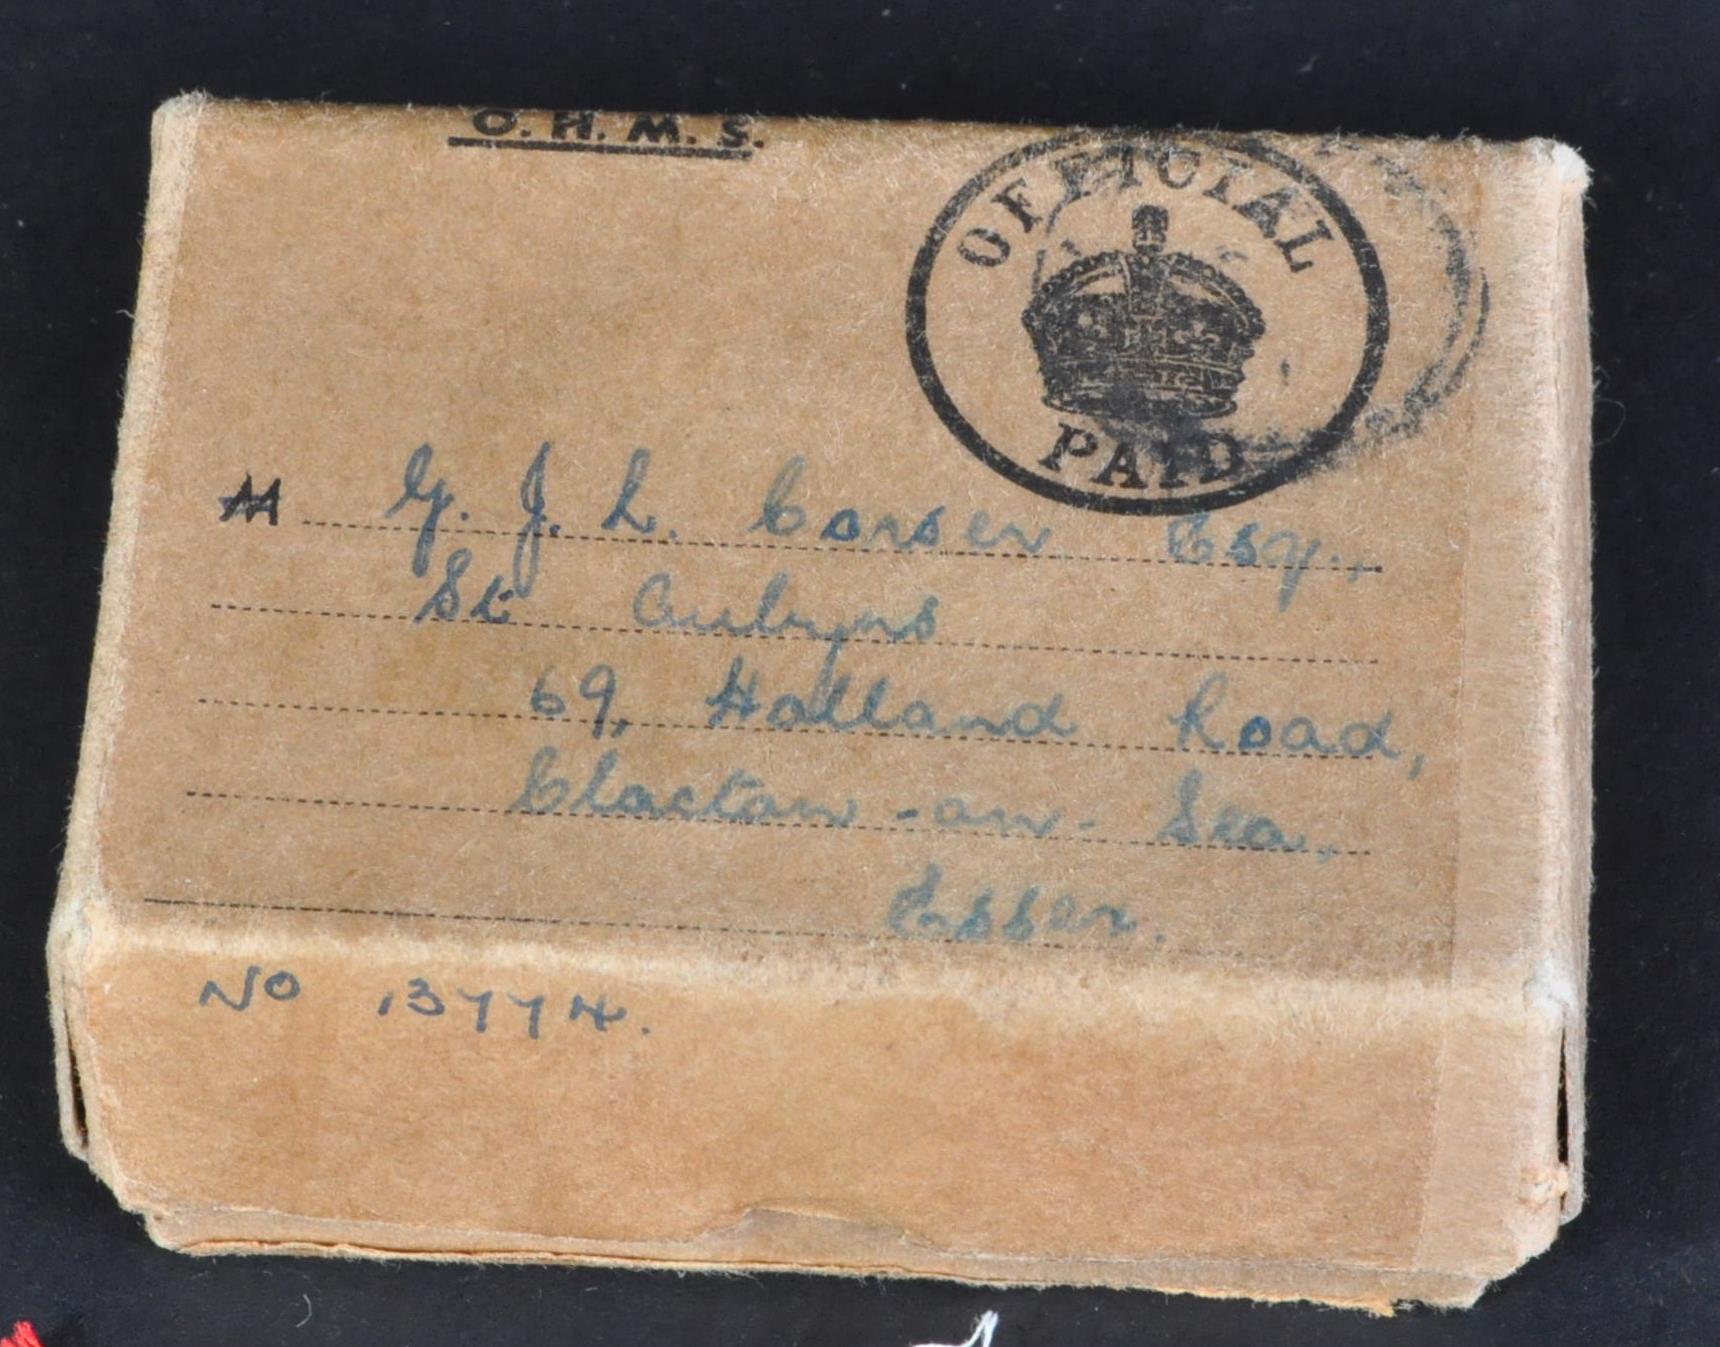 O. H. M. S.
OFFICIAL
PAID
M G. J. L. Corser Esq.,
St Aubyns
69, Holland Road,
Clacton-on-Sea,
Essex.
No 13774.